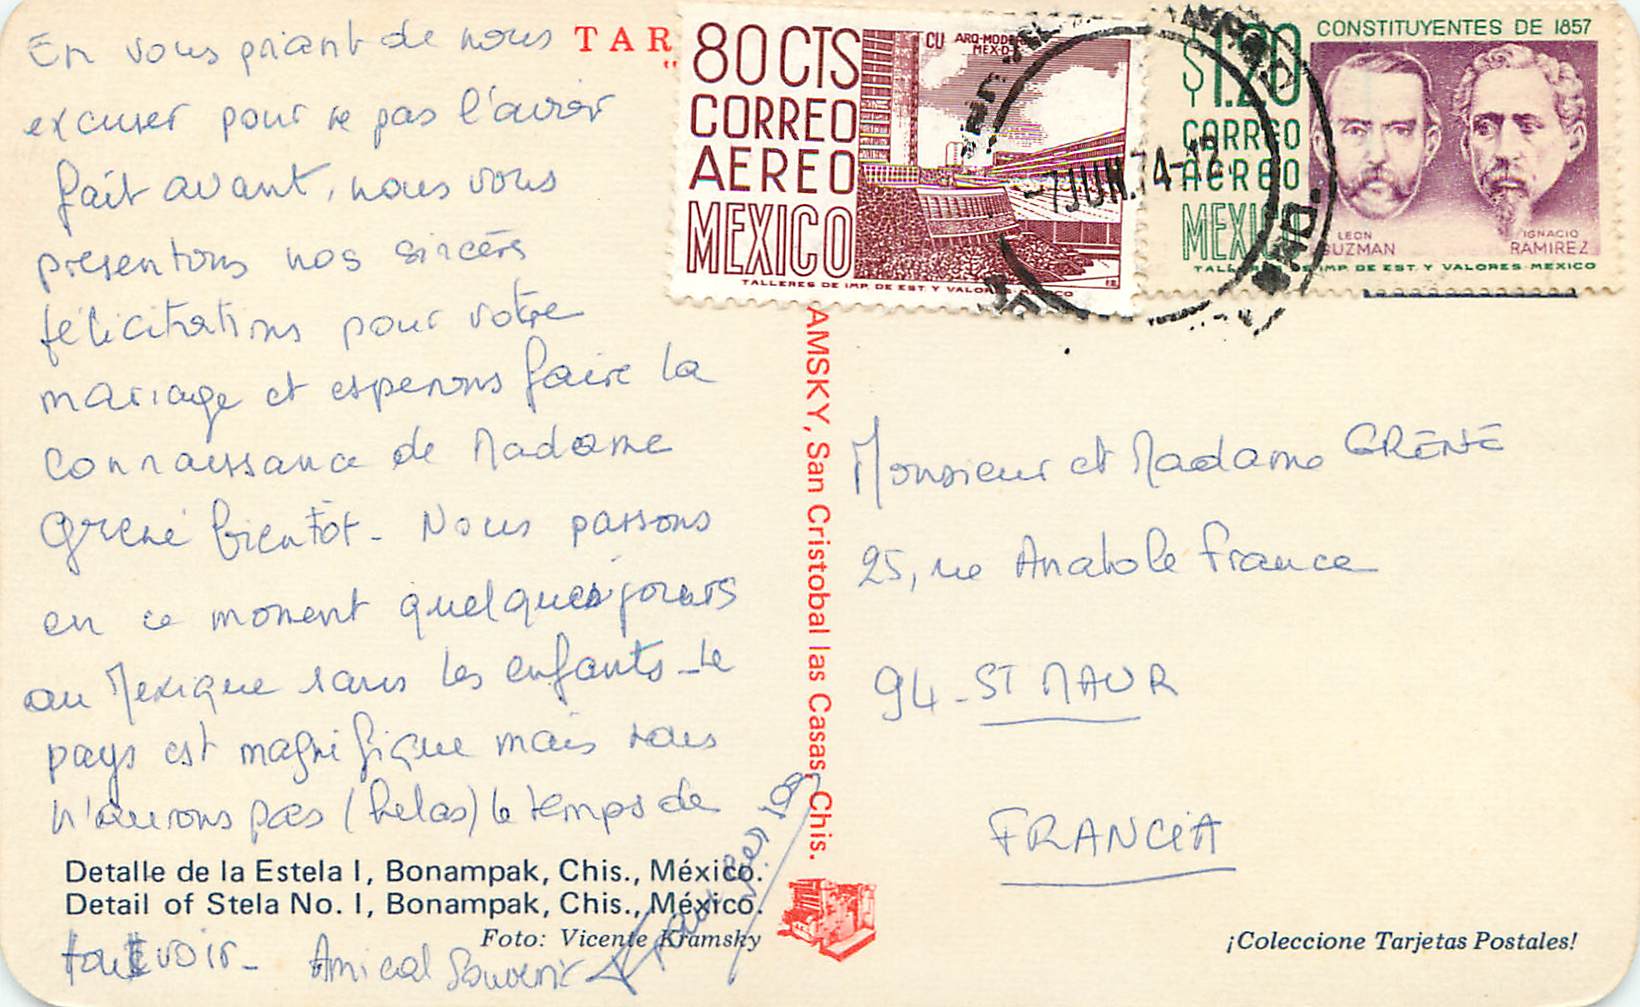 En vous priant de nous
excuser pour ne pas l'avoir
fait avant, nous vous
presentons nos sincères
félicitations pour votre
mariage et esperons faire la
connaissance de Madame
Grené bientôt - Nous passons
en ce moment quelques jours
au Mexique sans les enfants - Le
pays est magnifique mais nous
n'aurons pas (helas) le temps de
tout voir - Amical Souvenir
Detalle de la Estela I, Bonampak, Chis., México.
Detail of Stela No. I, Bonampak, Chis., México.
Foto: Vicente Kramsky
TAR
"
AMSKY, San Cristobal las Casas, Chis.
80 CTS
CORREO
AEREO
MEXICO
CU ARQ-MODERNA
MEX-D
TALLERES DE IMP. DE EST. Y VALORES-MEXICO
-7 JUN.74-12
CONSTITUYENTES DE 1857
$1.20
CORREO
AEREO
MEXICO
LEON
GUZMAN
IGNACIO
RAMIREZ
TALLERES DE IMP. DE EST. Y VALORES-MEXICO
Monsieur et Madame GRENÉ
25, rue Anatole France
94 - ST MAUR
FRANCIA
¡Coleccione Tarjetas Postales!